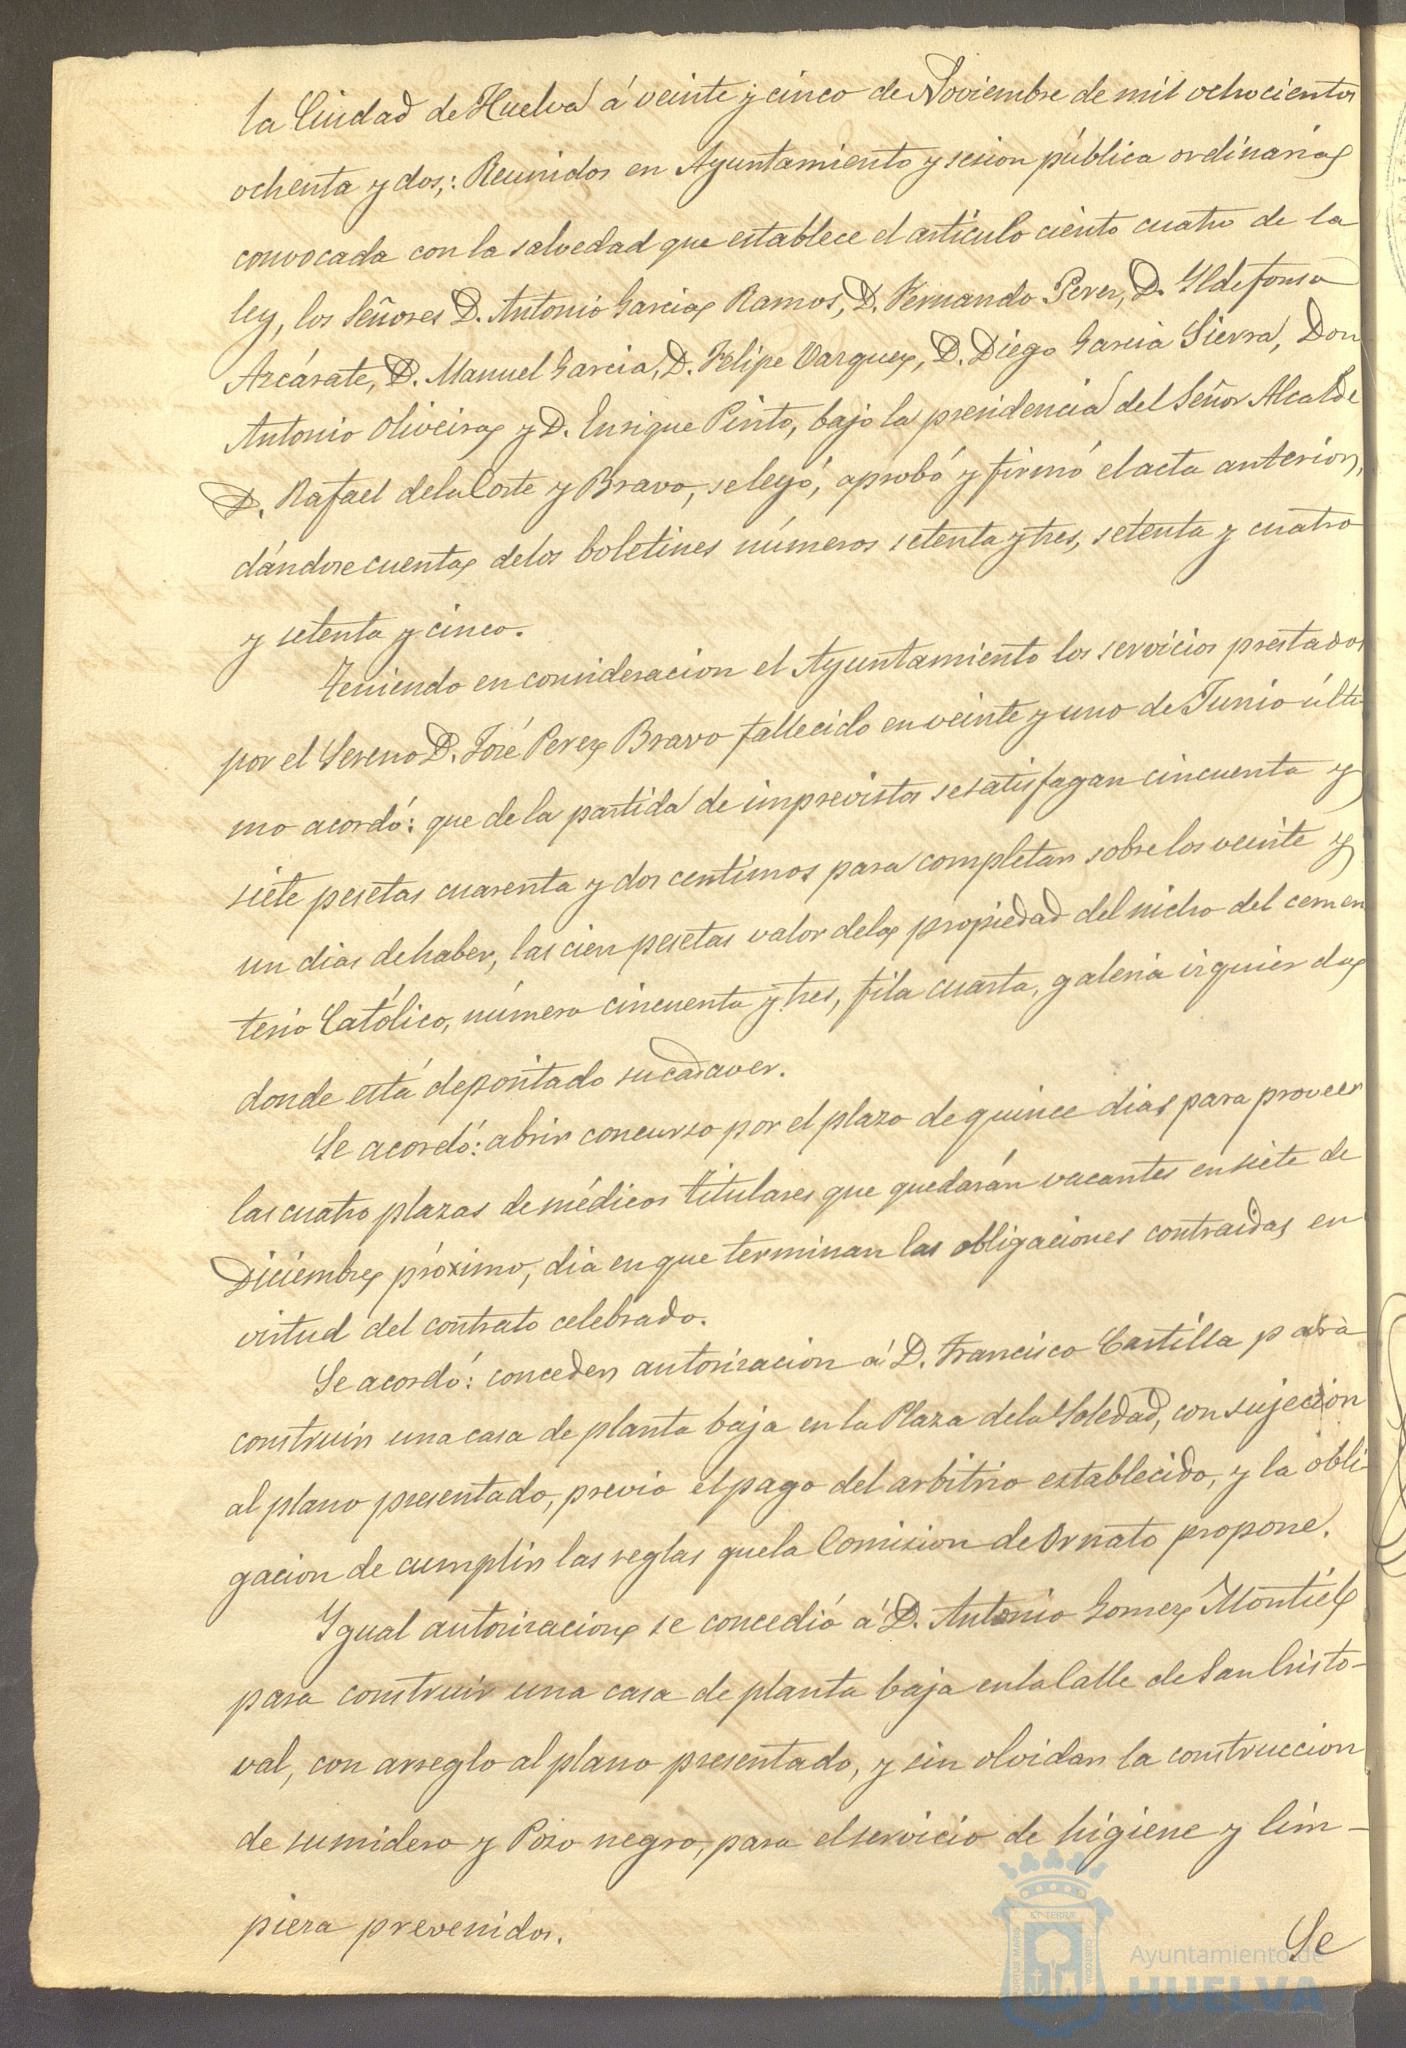 la Ciudad de Huelva á veinte y cinco de Noviembre de mil ochocientos
ochenta y dos,: Reunidos en Ayuntamiento y sesion pública ordinaria
convocada con la salvedad que establece el artículo ciento cuatro de la
ley, los Señores D. Antonio Garcia Ramos, D. Fernando Perez, D. Yldefonso
Azcárate, D. Manuel Garcia, D. Felipe Vazquez, D. Diego Garcia Sierra, Don
Antonio Oliveira y D. Enrique Pinto, bajo la presidencia del Señor Alcalde
D. Rafael de la Corte y Bravo, se leyó, aprobó y firmó el acta anterior,
dándose cuenta de los boletines números setenta y tres, setenta y cuatro
y setenta y cinco.
Teniendo en consideracion el Ayuntamiento los servicios prestados
por el Sereno D. José Perez Bravo fallecido en veinte y uno de Junio últi
mo acordó: que de la partida de imprevistos se satisfagan cincuenta y
siete pesetas cuarenta y dos centimos para completar sobre los veinte y
un dias de haber, las cien pesetas valor de la propiedad del nicho del cemen
terio Católico, número cincuenta y tres, fila cuarta, galeria izquierda
donde está depositado su cadaver.
Se acordó: abrir concurso por el plazo de quince dias para proveer
las cuatro plazas de médicos titulares que quedarán vacantes en siete de
Diciembre próximo, dia en que terminan las obligaciones contraidas en
virtud del contrato celebrado.
Se acordó: conceder autorizacion á D. Francisco Castilla para
construir una casa de planta baja en la Plaza de la Soledad, con sujecion
al plano presentado, previo el pago del arbitrio establecido, y la obli
gacion de cumplir las reglas que la Comision de Ornato propone.
Ygual autorizacion se concedió á D. Antonio Gomez Montiel
para construir una casa de planta baja en la Calle de San Cristo-
val, con arreglo al plano presentado, y sin olvidar la construccion
de sumidero y Pozo negro, para el servicio de higiene y lim-
pieza prevenidos.
Se
Ayuntamiento de
HUELVA